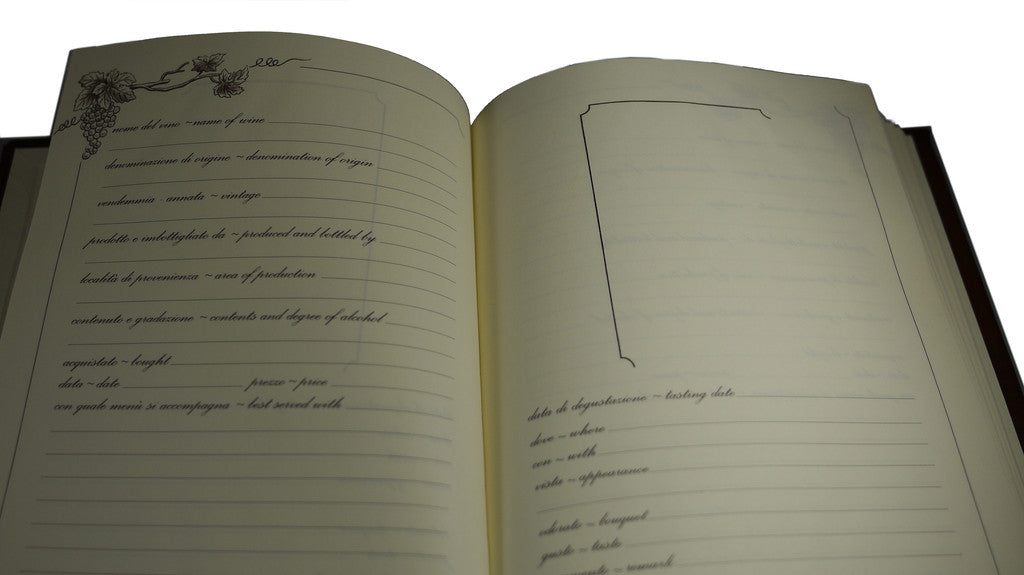 nome del vino ~ name of wine
denominazione di origine ~ denomination of origin
vendemmia - annata ~ vintage
prodotto e imbottigliato da ~ produced and bottled by
località di provenienza ~ area of production
contenuto e gradazione ~ contents and degree of alcohol
acquistato ~ bought
data ~ date prezzo ~ price
con quale menù si accompagna ~ best served with
data di degustazione ~ tasting date
dove ~ where
con ~ with
vista ~ appearance
odorato ~ bouquet
gusto ~ taste
~ remarks